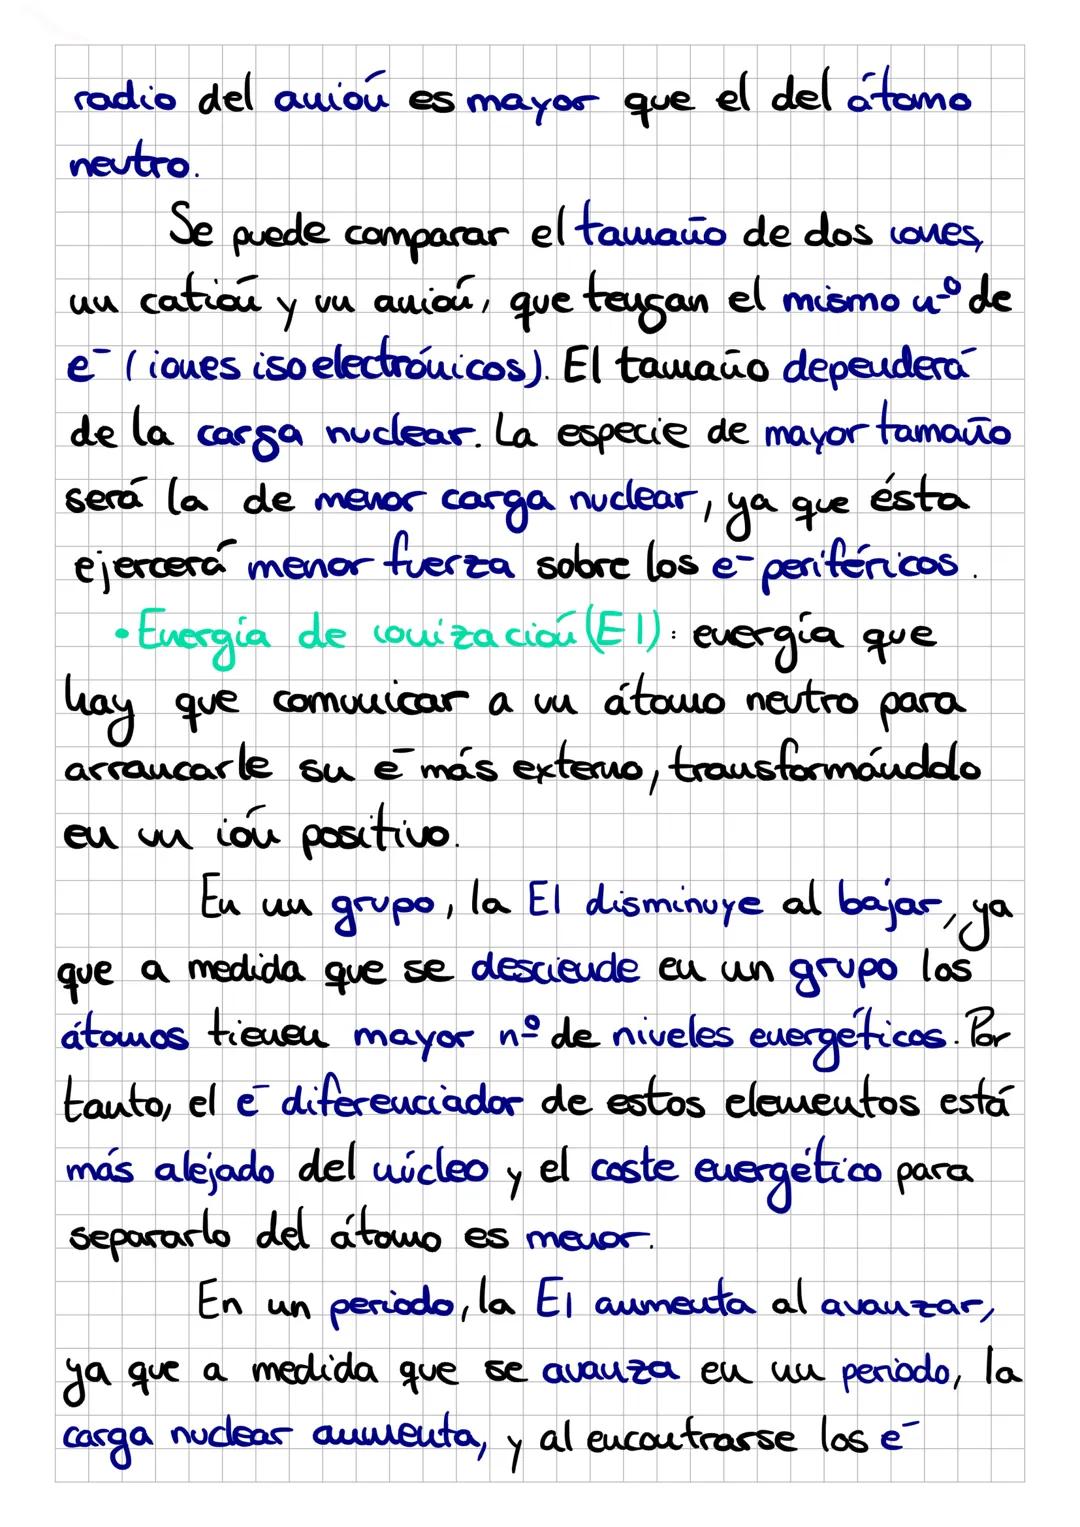 radio del anión es mayor que el del átomo
neutro.
Se puede comparar el tamaño de dos iones,
un catión y un anión, que tengan el mismo n-º de
e⁻ (iones isoelectrónicos). El tamaño dependerá
de la carga nuclear. La especie de mayor tamaño
será la de menor carga nuclear, ya que ésta
ejercerá menor fuerza sobre los e⁻ periféricos.
• Energía de ionización (EI): energía que
hay que comunicar a un átomo neutro para
arrancarle su e⁻ más externo, transformándolo
en un ión positivo.
En un grupo, la EI disminuye al bajar, ya
que a medida que se desciende en un grupo los
átomos tienen mayor nº de niveles energéticos. Por
tanto, el e⁻ diferenciador de estos elementos está
más alejado del núcleo y el coste energético para
separarlo del átomo es menor.
En un periodo, la EI aumenta al avanzar,
ya que a medida que se avanza en un periodo, la
carga nuclear aumenta, y al encontrarse los e⁻